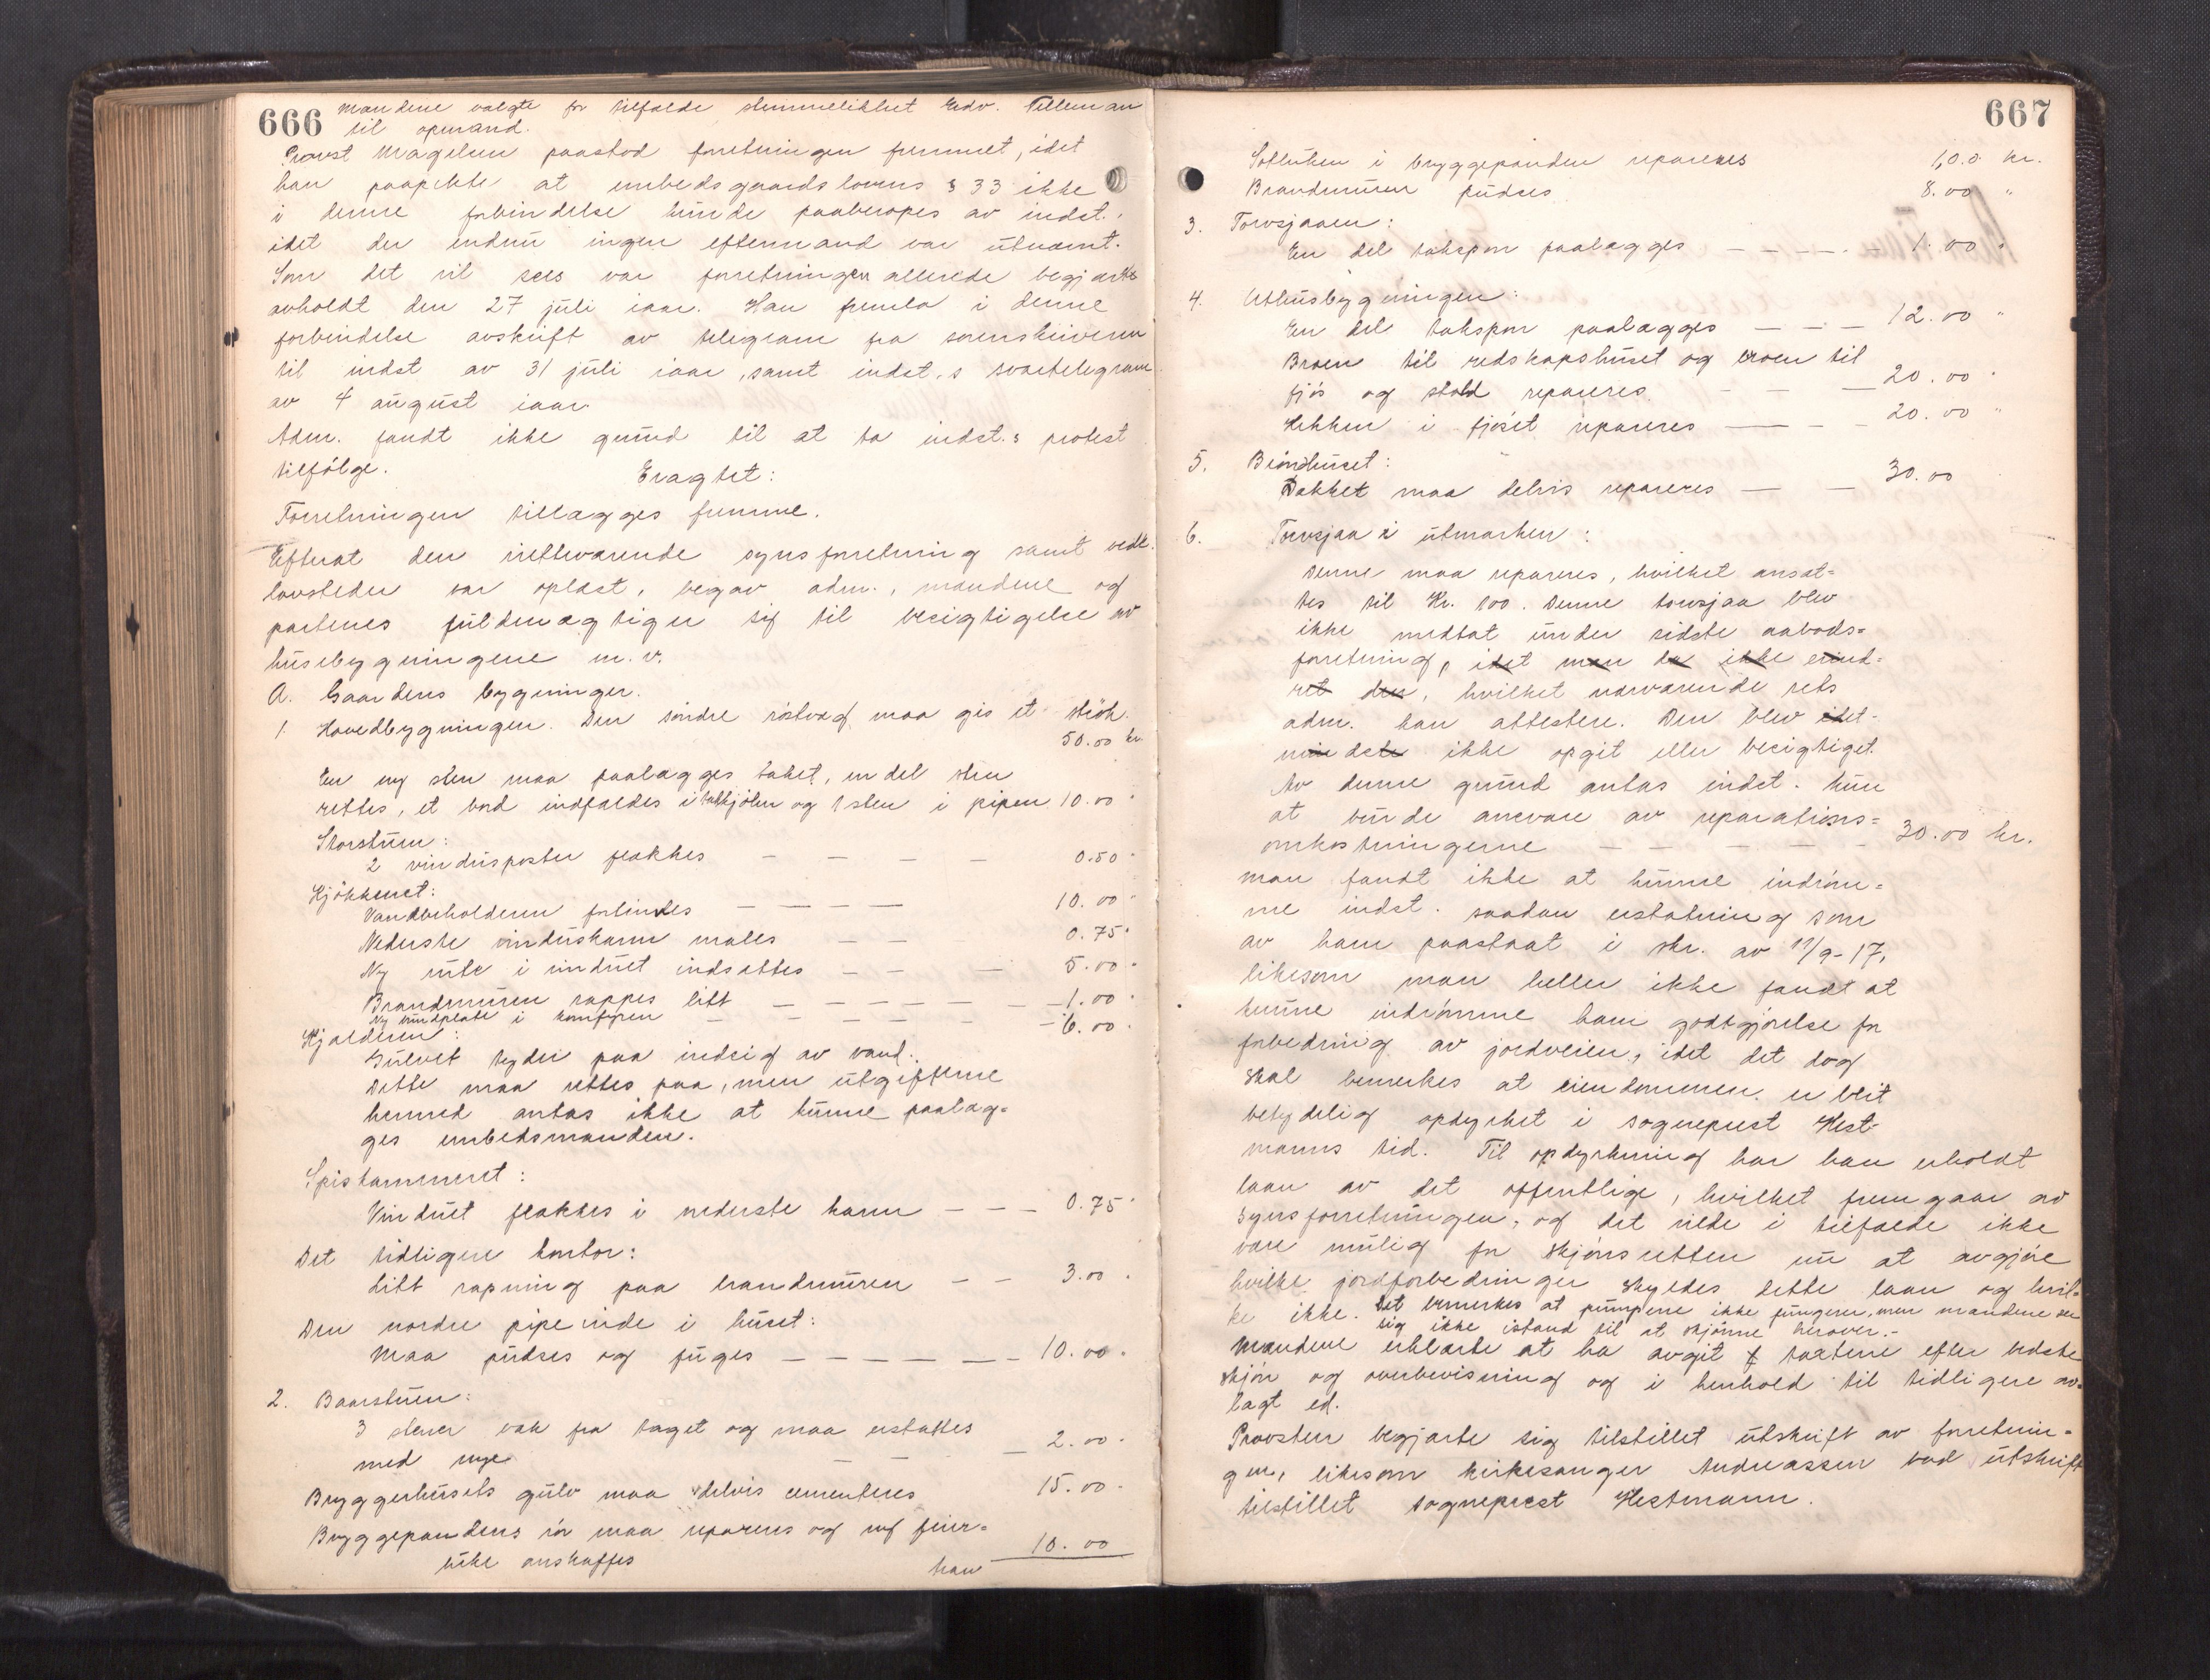 666
Mændene valgte for tilfælde stemmelikhet Edv. Tilleman
til opmand.
Provst Magelsen paastod forretningen fremmet, idet
han paapekte at embedsgaardslovens § 33 ikke
i denne forbindelse kunde paaberopes av indst.,
idet der endnu ingen eftermand var utnævnt.
Som det vil sees var forretningen allerede begjært
avholdt den 27 juli iaar. Han fremla i denne
forbindelse avskrift av telegram fra sorenskriveren
til indst av 31 juli iaar, samt indst.s svartelegram
av 4 august iaar.
Adm. fandt ikke grund til at ta indst.s protest
tilfølge.
Eragtet:
Forretningen tillægges fremme.
Efterat den nettværende synsforretning samt vedk.
lovsteder var oplæst, begav adm., mændene og
partenes fuldmægtiger sig til besigtigelse av
husebygningene m.v.
A. Gaardens bygninger.
1. Hovedbygningen. Den søndre røstvæg maa gis et strøk.
50.00 kr.
En ny sten maa paalægges taket, en del sten
rettes, et bord indfældes i takkjølen og 1 sten i pipen 10.00 "
Storstuen:
2 vindusposter flækkes — — — — 0.50 "
Kjøkkenet:
Vandbeholderen fortindes — — — — 10.00 "
Nederste vinduskarm males — — 0.75 "
Ny rute i vinduet indsættes — — — 5.00 "
Brandmuren rappes litt — — — — — — 1.00 "
Ny rundplate i komfyren — — — — — — 6.00 "
Kjælderen:
Gulvet tyder paa indsig av vand.
Dette maa rettes paa, men utgifterne
hermed antas ikke at kunne paalæg=
ges embedsmanden.
Spiskammeret:
Vinduet flækkes i nederste karm — — — 0.75 "
Det tidligere kontor:
Litt rapning paa brandmuren — — 3.00 "
Den nordre pipe inde i huset:
Maa pudses og fuges — — — — — — 10.00 "
2. Baarstuen:
3 stener væk fra taget og maa erstattes
med nye — — — 2.00 "
Bryggerhusets gulv maa delvis cementeres 15.00 "
Bryggepandens rør maa repareres og ny feier=
luke anskaffes 10.00
667
Sotluken i bryggepanden repareres 1,00 kr.
Brandmuren pudses 8.00 "
3. Torvsjaaen:
En del takspon paalægges — — — — — 1.00 "
4. Uthusbygningen:
En del takspon paalægges — — — 12.00 "
Broen til redskapshuset og broen til
fjøs og stald repareres — — — 20.00 "
Hekken i fjøset repareres — — — 20.00 "
5. Brøndhuset:
Dækket maa delvis repareres — — 30.00
6. Torvsjaa i utmarken:
Denne maa repareres, hvilket ansæt=
tes til Kr. 100. Denne torvsjaa blev
ikke medtat under sidste aabods=
forretning, idet man da ikke erind=
ret den, hvilket nærværende rets
adm. kan attestere. Den blev idet-
mindste ikke opgit eller besigtiget.
Av denne grund antas indst. kun
at burde ansvare av reparations=
omkostningerne — — — — — 30.00 kr.
Man fandt ikke at kunne indrøm=
me indst. saadan erstatning som
av ham paastaat i skr. av 17/9-17,
likesom man heller ikke fandt at
kunne indrømme ham godtgjørelse for
forbedring av jordveien, idet det dog
skal bemerkes at eiendommen er blit
betydelig opdyrket i sogneprest Hest-
manns tid. Til opdyrkning har han erholdt
laan av det offentlige, hvilket fremgaar av
synsforretningen, og det vilde i tilfælde ikke
være mulig for skjønsretten nu at avgjøre
hvilke jordforbedringer skyldes dette laan og hvil=
ke ikke. Det bemerkes at pumpene ikke fungerer, men mændene ser
sig ikke istand til at skjønne herover.-
Mændene erklærte at ha avgit taxterne efter bedste
skjøn og overbevisning og i henhold til tidligere av=
lagt ed.
Provsten begjærte sig tilstillet utskrift av forretnin=
gen, likesom kirkesanger Andreassen bad utskrift
tilstillet sogneprest Hestmann.